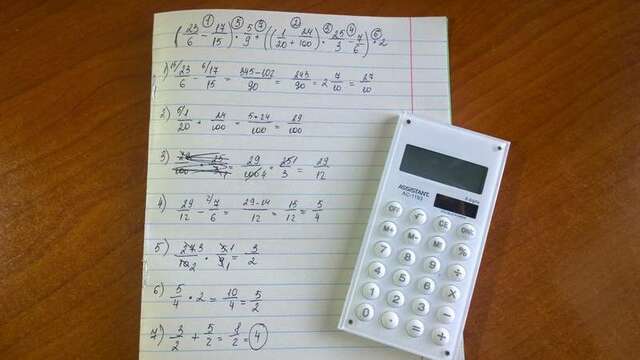 (23/6 - 17/15) · 5/9 + ((1/20 + 24/100) · 25/3 - 7/6) · 2
1) 15/ 23/6 - 6/ 17/15 = 345-102/90 = 243/90 = 2 7/10 = 27/10
2) 5/ 1/20 + 24/100 = 5+24/100 = 29/100
3) = 29/100 4 · 25 1/3 = 29/12
4) 29/12 - 2/ 7/6 = 29-14/12 = 15/12 = 5/4
5) 27 3/10 2 · 5 1/9 1 = 3/2
6) 5/4 · 2 = 10/4 = 5/2
7) 3/2 + 5/2 = 8/2 = 4
ASSISTANT
AC-1193
OFF √ CE ON/C
M+ M- M %
7 8 9 ÷
4 5 6 X
1 2 3 -
0 . = +